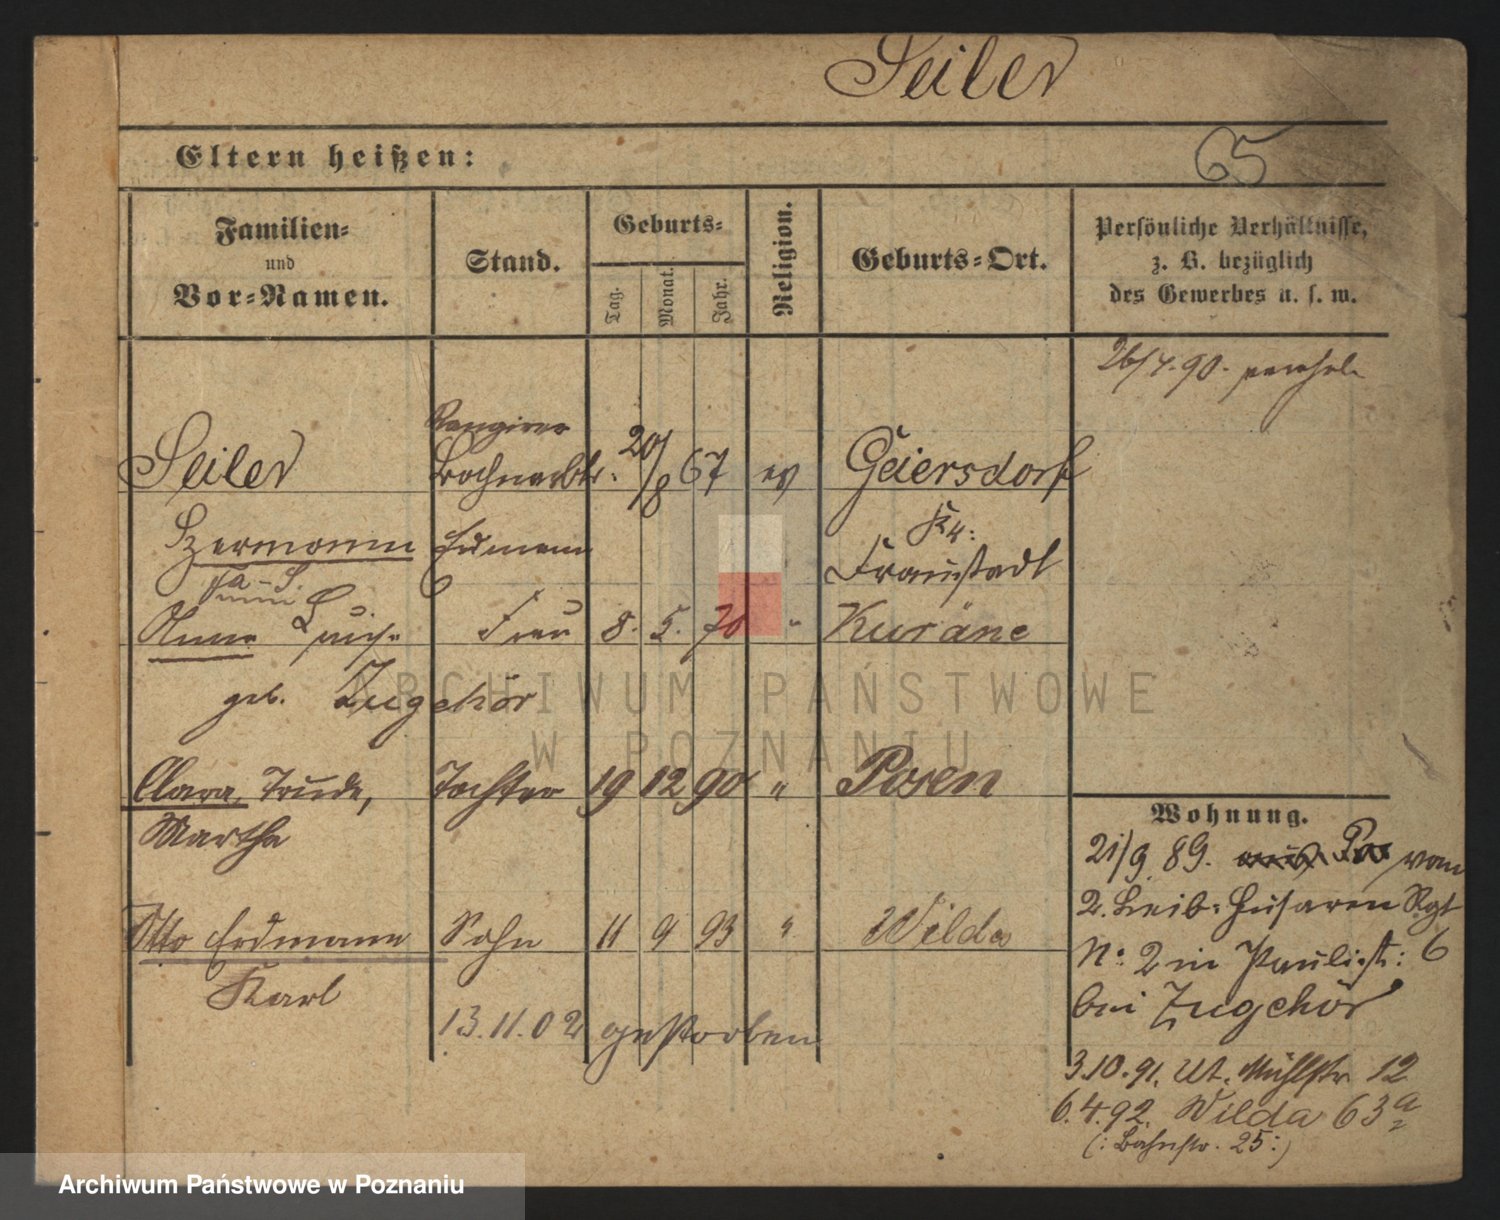 Seiler
Eltern heißen:
65
Familien-
und
Vor-Namen.
Stand.
Geburts-
Tag.
Monat.
Jahr.
Religion.
Geburts-Ort.
Persönliche Verhältnisse,
z. B. bezüglich
des Gewerbes u. s. w.
26/7.90.
Rangirer
Seiler 20/8 67 ev Geiersdorf
Hermann Erdmann Kr:
Fraustadt
Anna Luise Frau 8. 5. 70 " Kuräne
geb. Zugehör
Clara, Trude, Tochter 19 12 90 " Posen
Martha
Otto Erdmann Sohn 11 9 93 " Wilda
Karl
13.11.02 gestorben
Wohnung.
21/9.89. vom
2. Leib-Husaren Rgt
No 2 in Paulist: 6
bei Zugehör
3.10.91. Ut. Mühlstr 12
6.4.92. Wilda 63a
(: Bahnstr. 25:)
ARCHIWUM PAŃSTWOWE
W POZNANIU
Archiwum Państwowe w Poznaniu